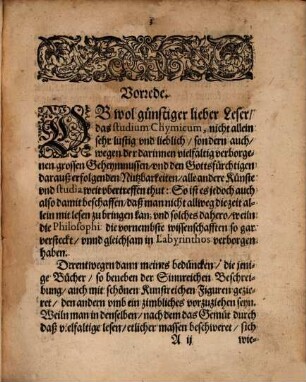 Vorrede.
OB wol günstiger lieber Leser/
das studium Chymicum, nicht allein
sehr lustig vnd lieblich / sondern auch
wegen der darinnen vielfaltig verborge-
nen grossen Geheymnussen / vnd den Gottsfürchtigen
darauß erfolgenden Nutzbarkeiten / alle andere Künste
vnd studia weit vbertreffen thut: So ist es jedoch auch
also damit beschaffen / daß man nicht allweg die zeit al-
lein mit lesen zu bringen kan / vnd solches dahero / weiln
die Philosophi die vornembste wissenschafften so gar
versteckt / vnnd gleichsam in Labyrinthos verborgen
haben.
Derentwegen dann meines bedünckens / die jeni-
ge Bücher / so beneben der Sinnreichen Beschrei-
bung / auch mit schönen Kunstreichen Figuren gezie-
ret / den andern vmb ein zimbliches vorzuziehen seyn.
Weiln man in denselben / nach dem das Gemüt durch
daß vielfaltige lesen / etlicher massen beschweret / sich
A ij
wie-